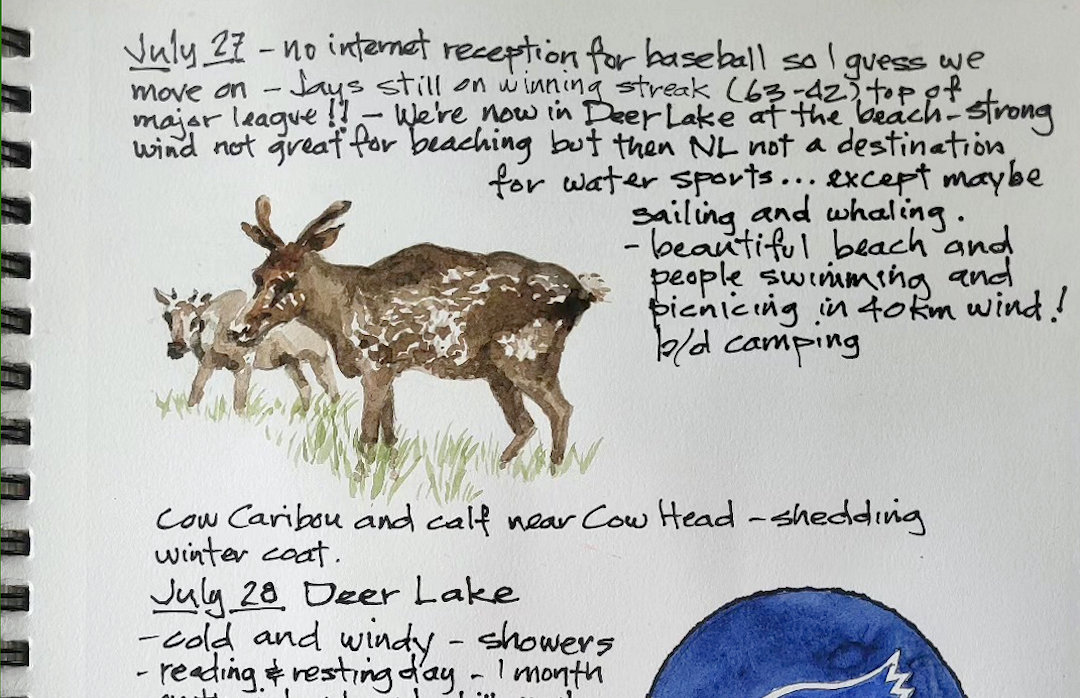 July 27 - no internet reception for baseball so I guess we
move on - Jays still on winning streak (63-42) top of
major league!! - We're now in Deer Lake at the beach - strong
wind not great for beaching but then NL not a destination
for water sports... except maybe
sailing and whaling.
- beautiful beach and
people swimming and
picnicing in 40km wind!
b/d camping
Cow Caribou and calf near Cow Head - shedding
winter coat.
July 28 Deer Lake
- cold and windy - showers
- reading & resting day - 1 month